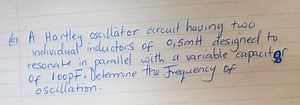 6) A Hartley oscillator circuit having two
individual inductors of 0,5mH designed to
resonate in parallel with a variable capacitor
of 100pF. Determine the frequency of
oscillation.